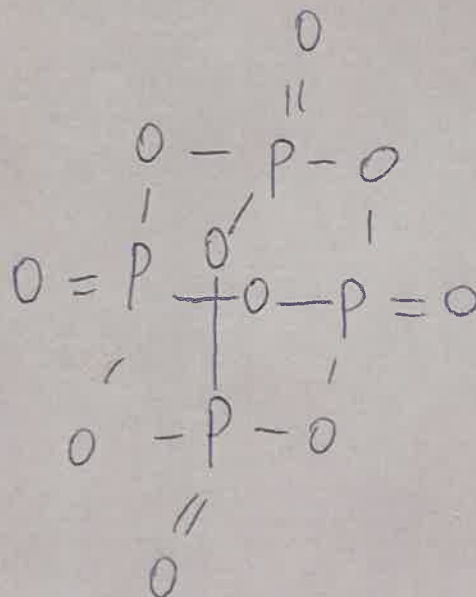 O
O P O
O
O P O P O
O P O
O